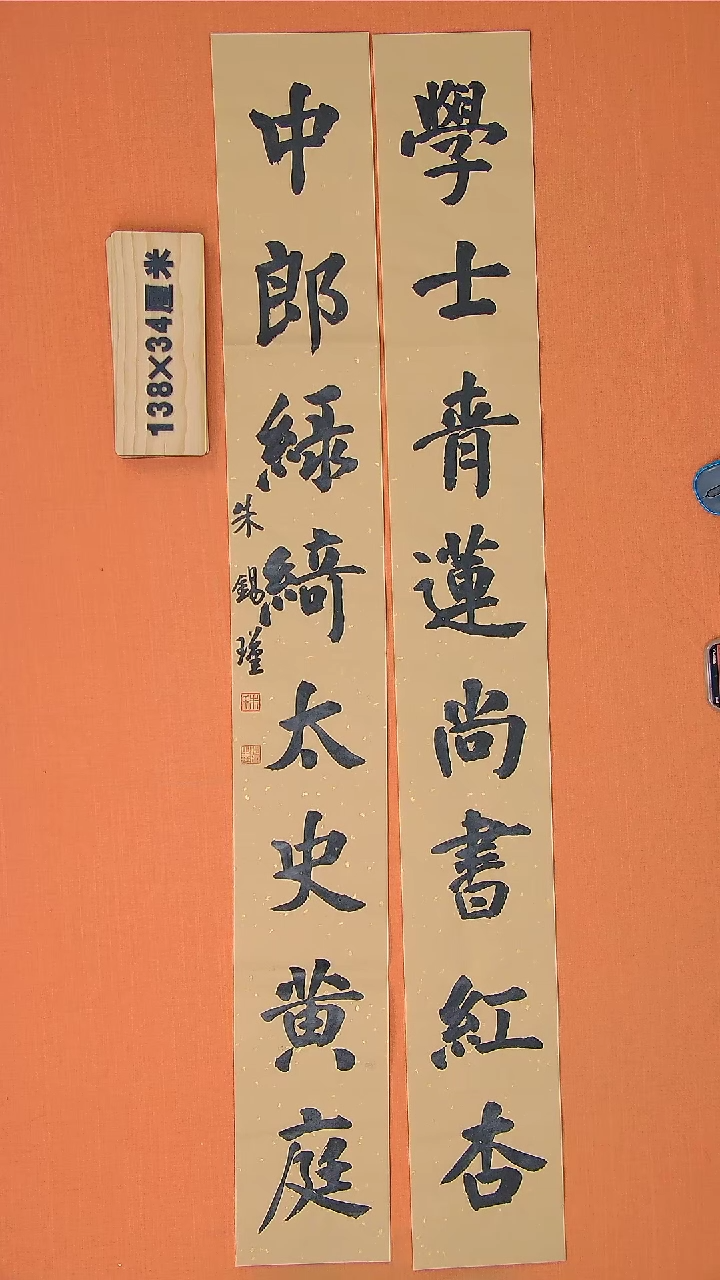 學士青蓮尚書紅杏
中郎綠綺太史黄庭
朱錫瑾
138×34厘米